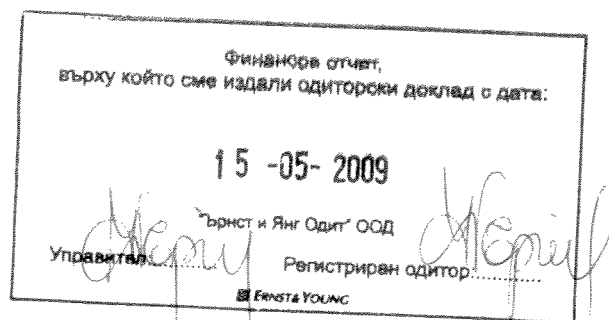 Финансов отчет,
върху който сме издали одиторски доклад с дата:
15 -05- 2009
"Ърнст и Янг Одит" ООД
Управител:............ Регистриран одитор:............
ERNST & YOUNG